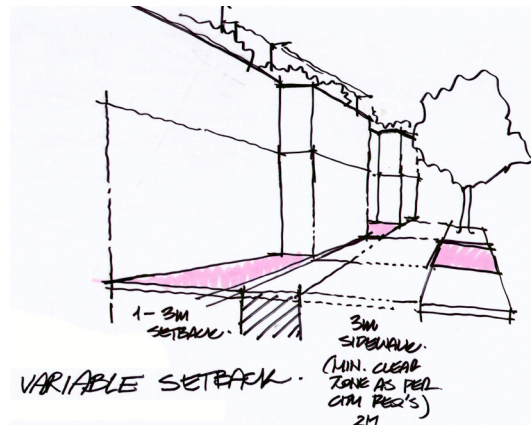 1-3M
SETBACK.
3M
SIDEWALK.
(MIN. CLEAR
ZONE AS PER
CITY REQ'S)
2M
VARIABLE SETBACK.